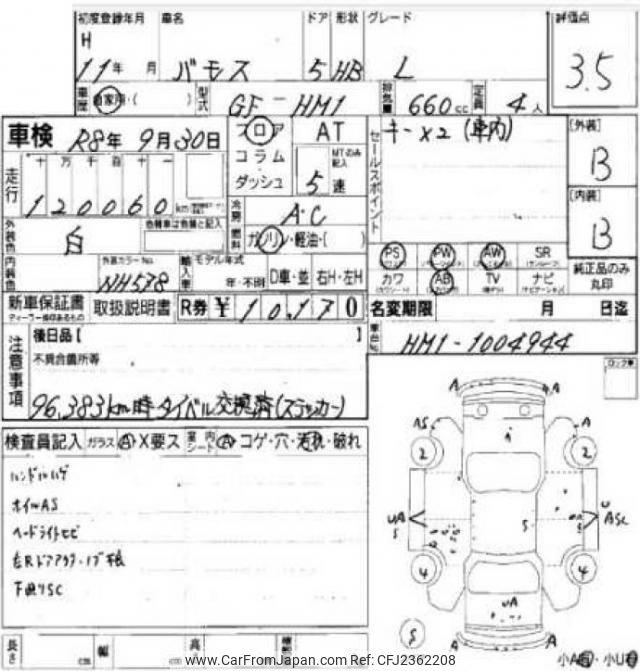 初度登録年月 車名 ドア 形状 グレード 評価点
H
11年 月 バモス 5 HB L 3.5
車歴 自家用・( ) 型式 GF-HM1 排気量 660cc 定員 4人
車検 R8年 9月30日 フロア AT セールスポイント キー×2(車内) [外装]
コラム・ MTのみ記入 B
走行 十 万 千 百 十 一 ダッシュ 5速
120060 km 冷房 A・C [内装]
外装色 白 色替車は色替と記入 燃料 ガソリン・軽油・( ) B
内装色 外装カラーNo. NH578 輸入車 モデル年式 年・不明 D車・並 右H・左H
PS PW AW SR
カワ AB TV ナビ 純正品のみ丸印
新車保証書 取扱説明書 R券 ¥ 10,170 名変期限 月 日迄
ディーラー捺印あるもの
車台No. HM1-1004944
注意事項 後日品[ ]
不具合箇所等
96,383km時タイベル交換済(ステッカー)
検査員記入 ガラス A・X要ス 室内シート A・コゲ・穴・汚れ・破れ
ハンドルハゲ
ホイルAS
ヘードライトヒビ
下廻りSC
A A
AS A
2 2
UA S S U ASC
4 4
UA
S A A
長さ cm 幅 cm 高さ
小A・小U
www.CarFromJapan.com Ref: CFJ2362208